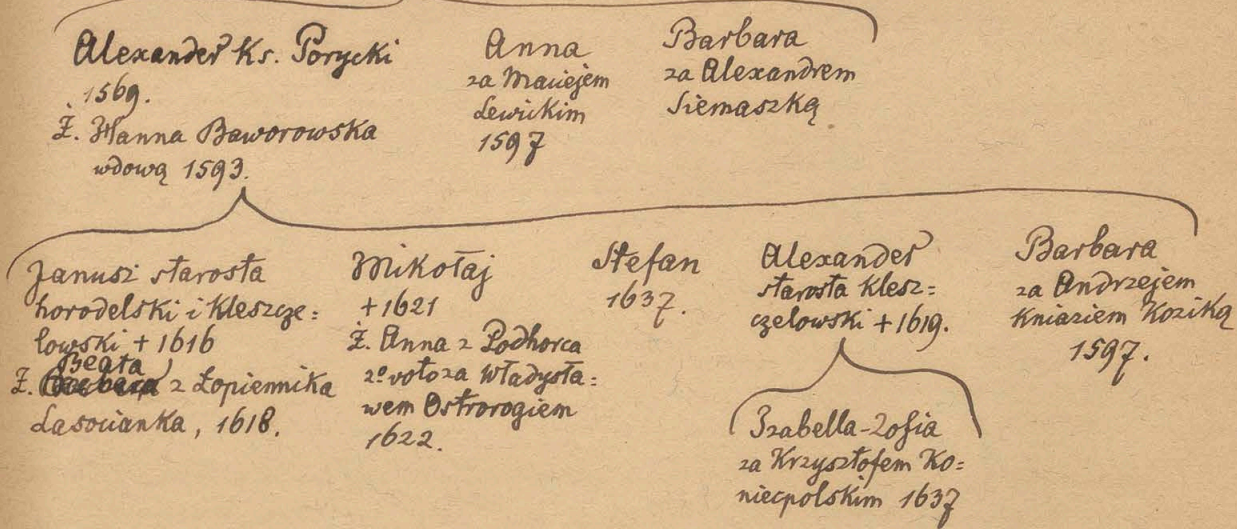 Alexander Ks. Porycki
1569.
Ż. Hanna Baworowska
wdową 1593.
Anna
za Maciejem
Lewickim
1597
Barbara
za Alexandrem
Siemaszką
Janusz starosta
horodelski i Kleszcze=
lowski + 1616
Beata
Ż. z Łopiennika
Lasocianka, 1618.
Mikołaj
+ 1621
Ż. Anna z Podhorca
2º voto za Władysła=
wem Ostrorogiem
1622.
Stefan
1637.
Alexander
starosta Klesz=
czelowski + 1619.
Izabella-Zofia
za Krzysztofem Ko=
niecpolskim 1637
Barbara
za Andrzejem
Kniaziem Koziką
1597.